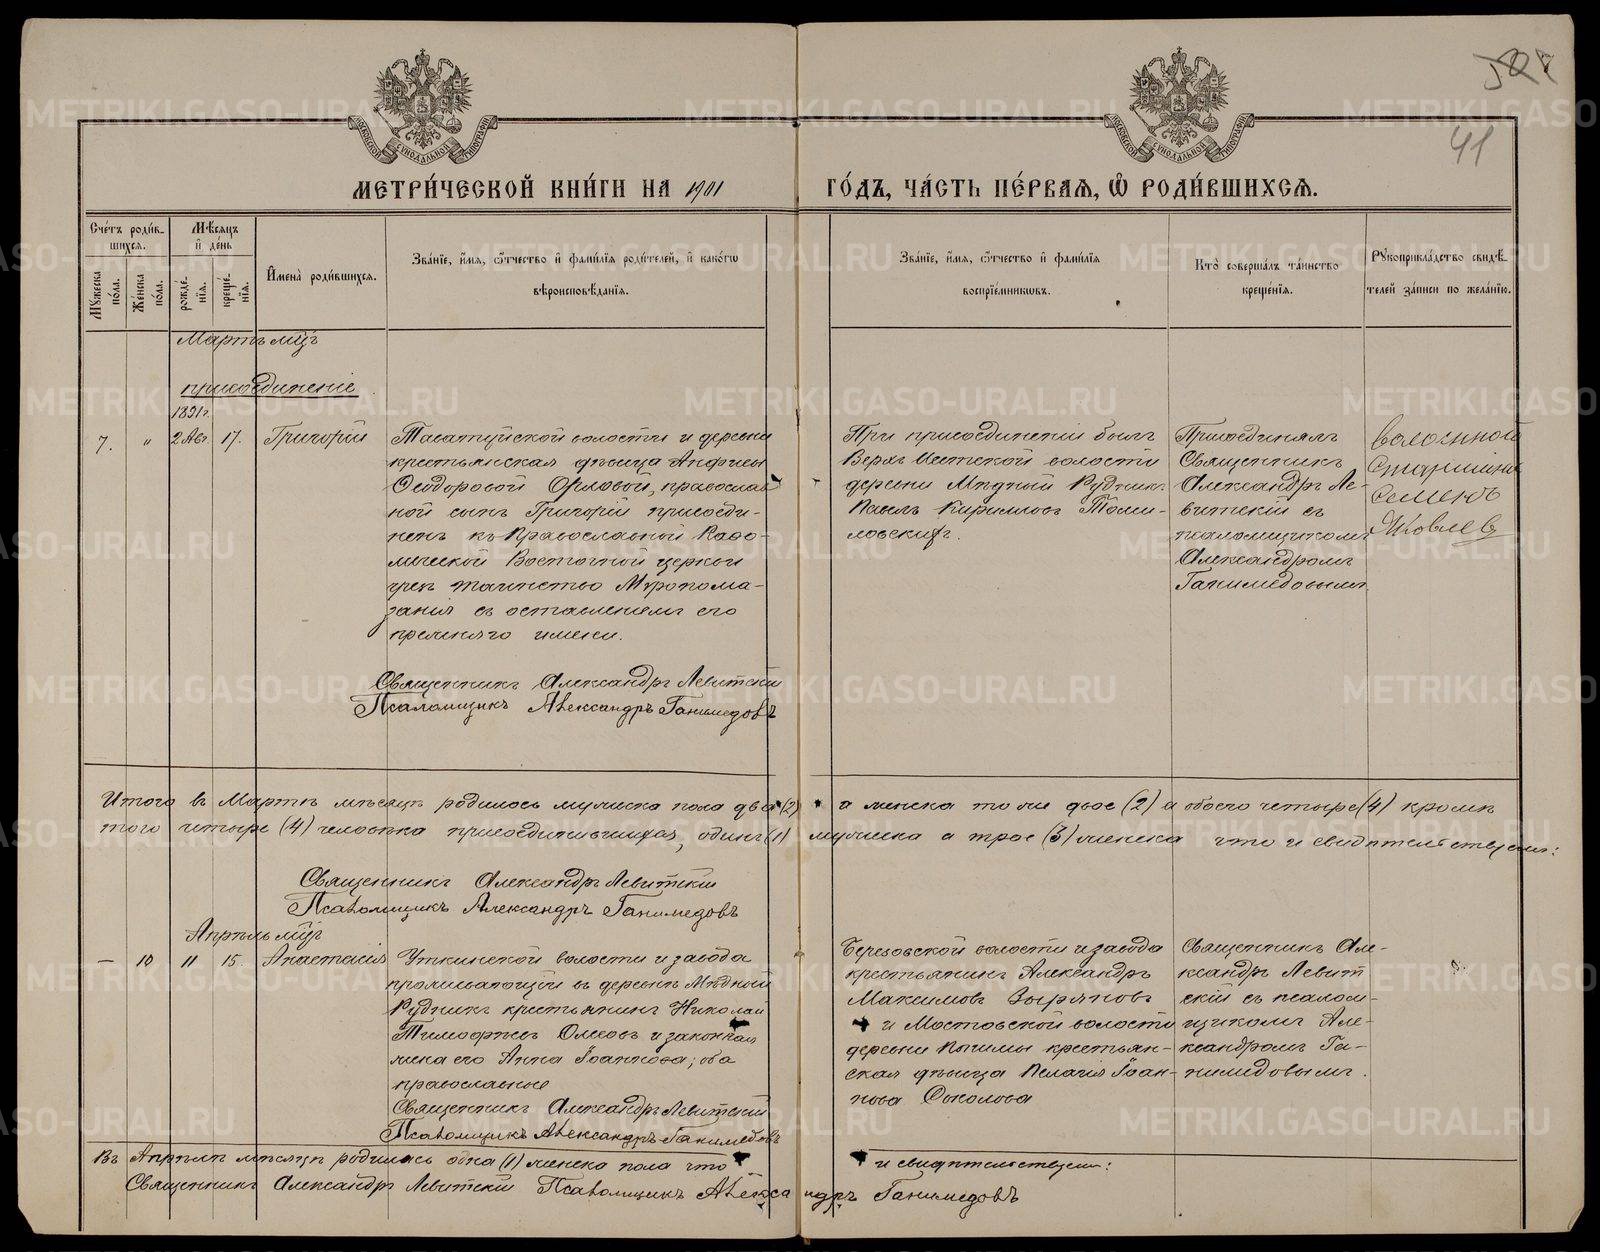 МЕТРИ́ЧЕСКОЙ КНИ́ГИ НА 1901 ГО́ДЪ, ЧА́СТЬ ПЕ́РВАЯ, Ѡ РОДИ́ВШИХСЯ.
41
Сче́тъ роди́в-
шихся.
Мѣ́сяцъ
и де́нь
Мужеска
по́ла.
Же́нска
по́ла.
рожде́-
нія.
креще́-
нія.
Имена̀ роди́вшихся.
Зва́ніе, и́мя, ѻ́тчество и фами́лія роди́телей, и како́гѡ
вѣроисповѣ́данія.
Зва́ніе, и́мя, ѻ́тчество и фами́лія
воспріе́мниковъ.
Кто̀ соверша́лъ та́инство
креще́нія.
Рукоприкла́дство свидѣ́-
телей за́писи по жела́нію.
Мартъ мц̃ъ
присоединеніе
1891г.
7. " 2 Авг. 17. Григорій
Тасатуйской волости и деревни
крестьянская дѣвица Анфисы
Ѳеодоровой Орловой, православ
ной сынъ Григорій присоеди-
ненъ къ Православной Каѳо-
лической Восточной церкви
чрез таинство Мѵропома-
занія съ оставленіемъ его
прежняго имени.
Священникъ Александръ Левитскій
Псаломщикъ Александръ Ганимедовъ
При присоединеніи былъ
Верхъ Исетской волости
деревни Мѣдный Рудникъ
Павелъ Кирилловъ Томи-
ловскихъ.
Присоединялъ
Священникъ
Александръ Ле-
витскій съ
псаломщикомъ
Александромъ
Ганимедовымъ.
Волостной
Старшина
Семенъ
Яковлев
Итого в Мартѣ мѣсяцѣ родилось мужеска пола два (2) а женска то же двое (2) а обоего четыре (4) кромѣ
того четыре (4) человѣка присоединившихся, одинъ (1) мужеска а трое (3) женска что и свидѣтельствуемъ:
Священникъ Александръ Левитскій
Псаломщикъ Александръ Ганимедовъ
Апрѣль мц̃ъ
— 10 11 15. Анастасія
Уткинской волости и завода
проживающій въ деревнѣ Мѣдной
Рудникъ крестьянинъ Николай
Тимофѣевъ и законная
жена его Анна Іоаннова; оба
православные
Священникъ Александръ Левитскій
Псаломщикъ Александръ Ганимедовъ
Березовской волости и завода
крестьянинъ Александръ
Максимовъ Зыряновъ
и Мостовской волости
деревни Пышмы крестьян-
ская дѣвица Пелагія Іоан-
нова Соколова
Священникъ Але-
ксандръ Левит
скій съ псалом-
щикомъ Але-
ксандромъ Га-
нимедовымъ.
Въ Апрѣлѣ мѣсяцѣ родилась одна (1) женска пола что и свидѣтельствуемъ:
Священникъ Александръ Левитскій Псаломщикъ Александръ Ганимедовъ
METRIKI.GASO-URAL.RU